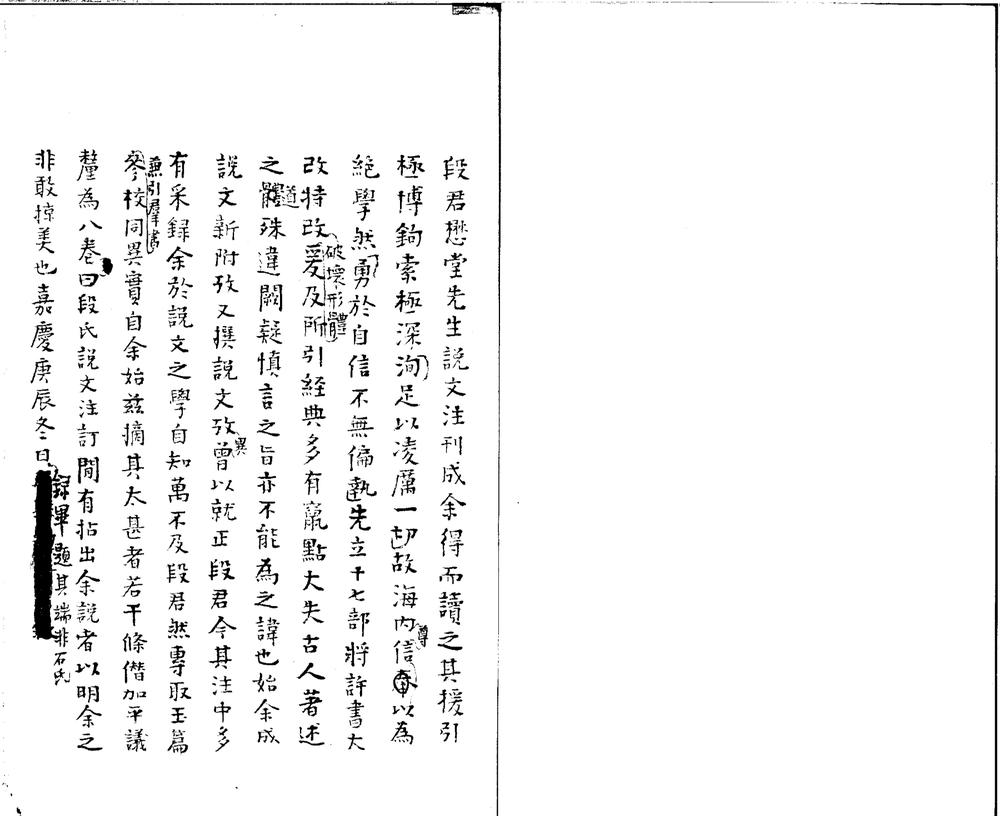 段君懋堂先生說文注刊成余得而讀之其援引
極博鉤索極深洵足以凌厲一切故海內信尊奉以為
絕學然勇於自信不無偏執先立十七部將許書大
改特改破壞形體爰及所引經典多有竄點大失古人著述
之體道殊違闕疑慎言之旨亦不能為之諱也始余成
說文新附攷又撰說文攷異曾以就正段君今其注中多
有采録余於說文之學自知萬不及段君然專取玉篇
兼引羣書參校同異實自余始茲摘其太甚者若干條僭加平議
釐為八卷曰段氏說文注訂閒有拈出余說者以明余之
非敢掠美也嘉慶庚辰冬日録畢題其端非石氏